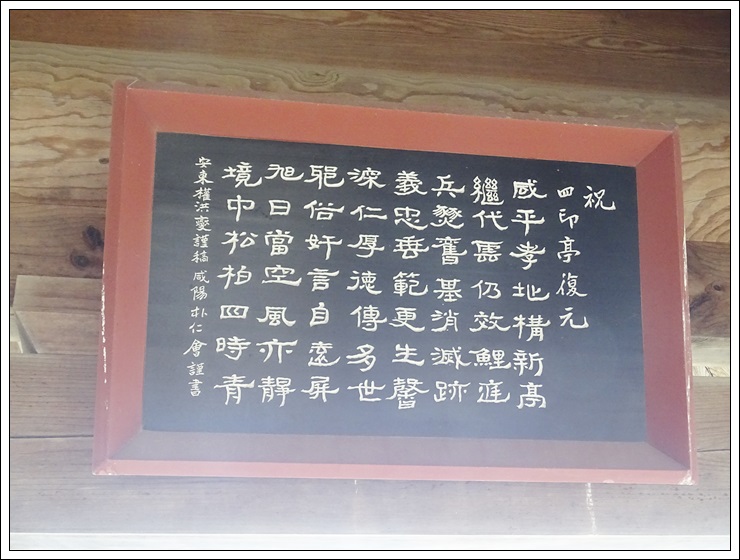 祝
四印亭復元
咸平孝地構新亭
繼代雲仍效鯉庭
兵燹舊基消滅跡
義忠垂範更生馨
深仁厚德傳多世
邪俗奸言自遠屏
旭日當空風亦靜
境中松柏四時青
安東權洪燮謹稿 咸陽朴仁會謹書